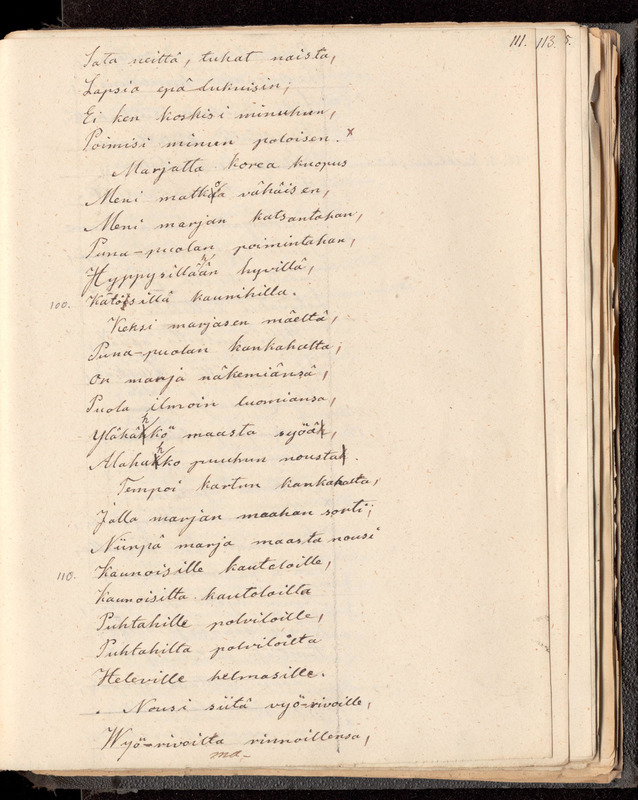 111. 113. 5.
Sata neittä, tuhat naista,
Lapsia epä-lukuisin;
Ei ken koskisi minuhun,
Poimisi minun poloisen. x
Marjatta korea kuopus
Meni matkoa vähäisen,
Meni marjan katsantahan,
Puna-puolan poimintahan,
Hyppysillähän hyvillä,
100. Kätösillä kaunihilla.
Keksi marjasen mäeltä,
Puna-puolan kankahalta;
On marja näkemiänsä,
Puola ilmoin luomiansa,
Ylähähkö maasta syöä,
Alahahko puuhun nousta.
Tempoi kartun kankahalta,
Jolla marjan maahan sorti;
Niinpä marja maasta nousi
110. Kaunoisille kautoloille,
Kaunoisilta kautoloilta
Puhtahille polviloille,
Puhtahilta polviloilta
Heleville helmasille.
Nousi siitä vyö-rivoille,
Wyö-rivoilta rinnoillensa,
ma-